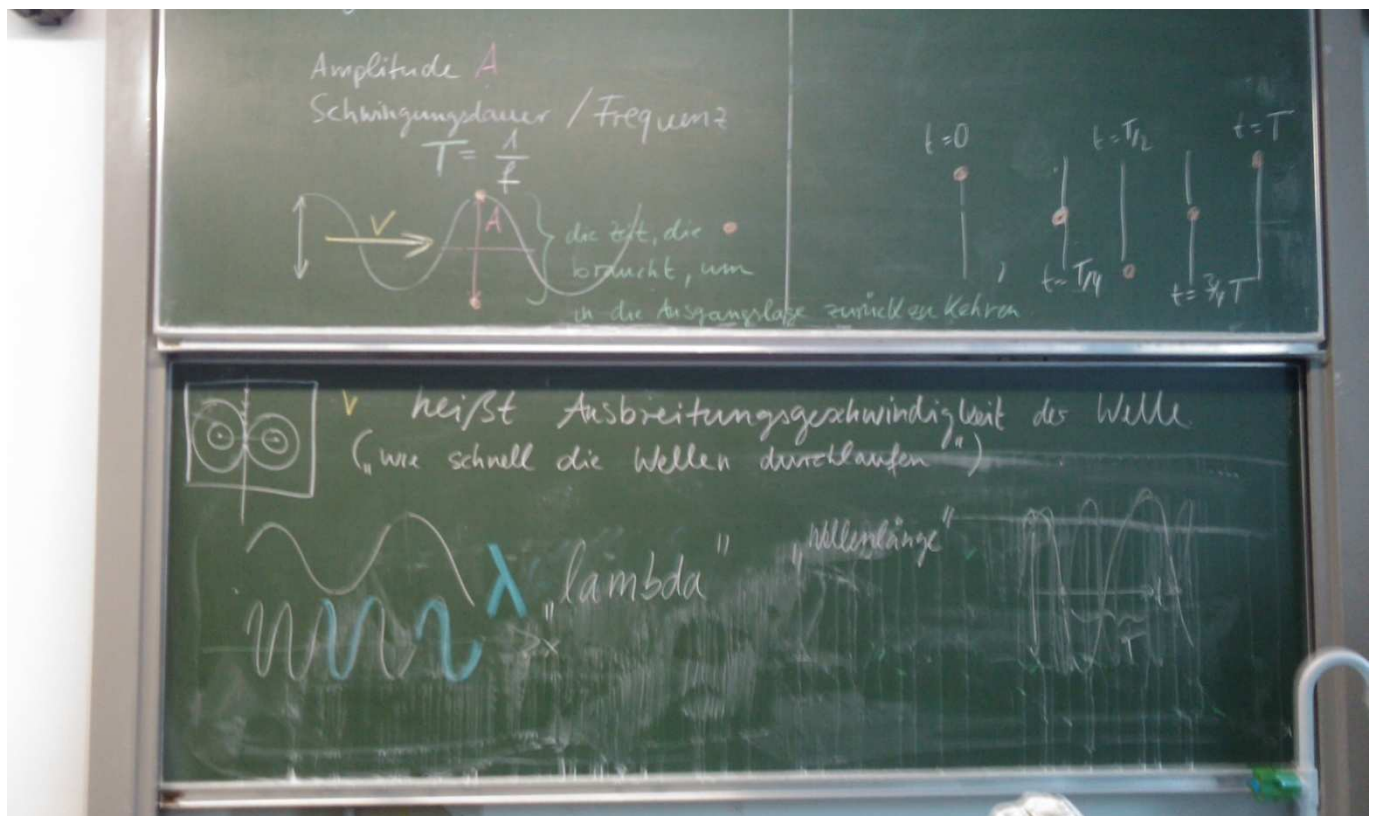 Amplitude A
Schwingungsdauer / Frequenz
T = 1/f
V
A
die Zeit, die
braucht, um
in die Ausgangslage zurück zu kehren
t=0
t=T/4
t=T/2
t=3/4 T
t=T
v heißt Ausbreitungsgeschwindigkeit der Welle
(„wie schnell die Wellen durchlaufen")
λ „lambda" „Wellenlänge"
>x
t
T